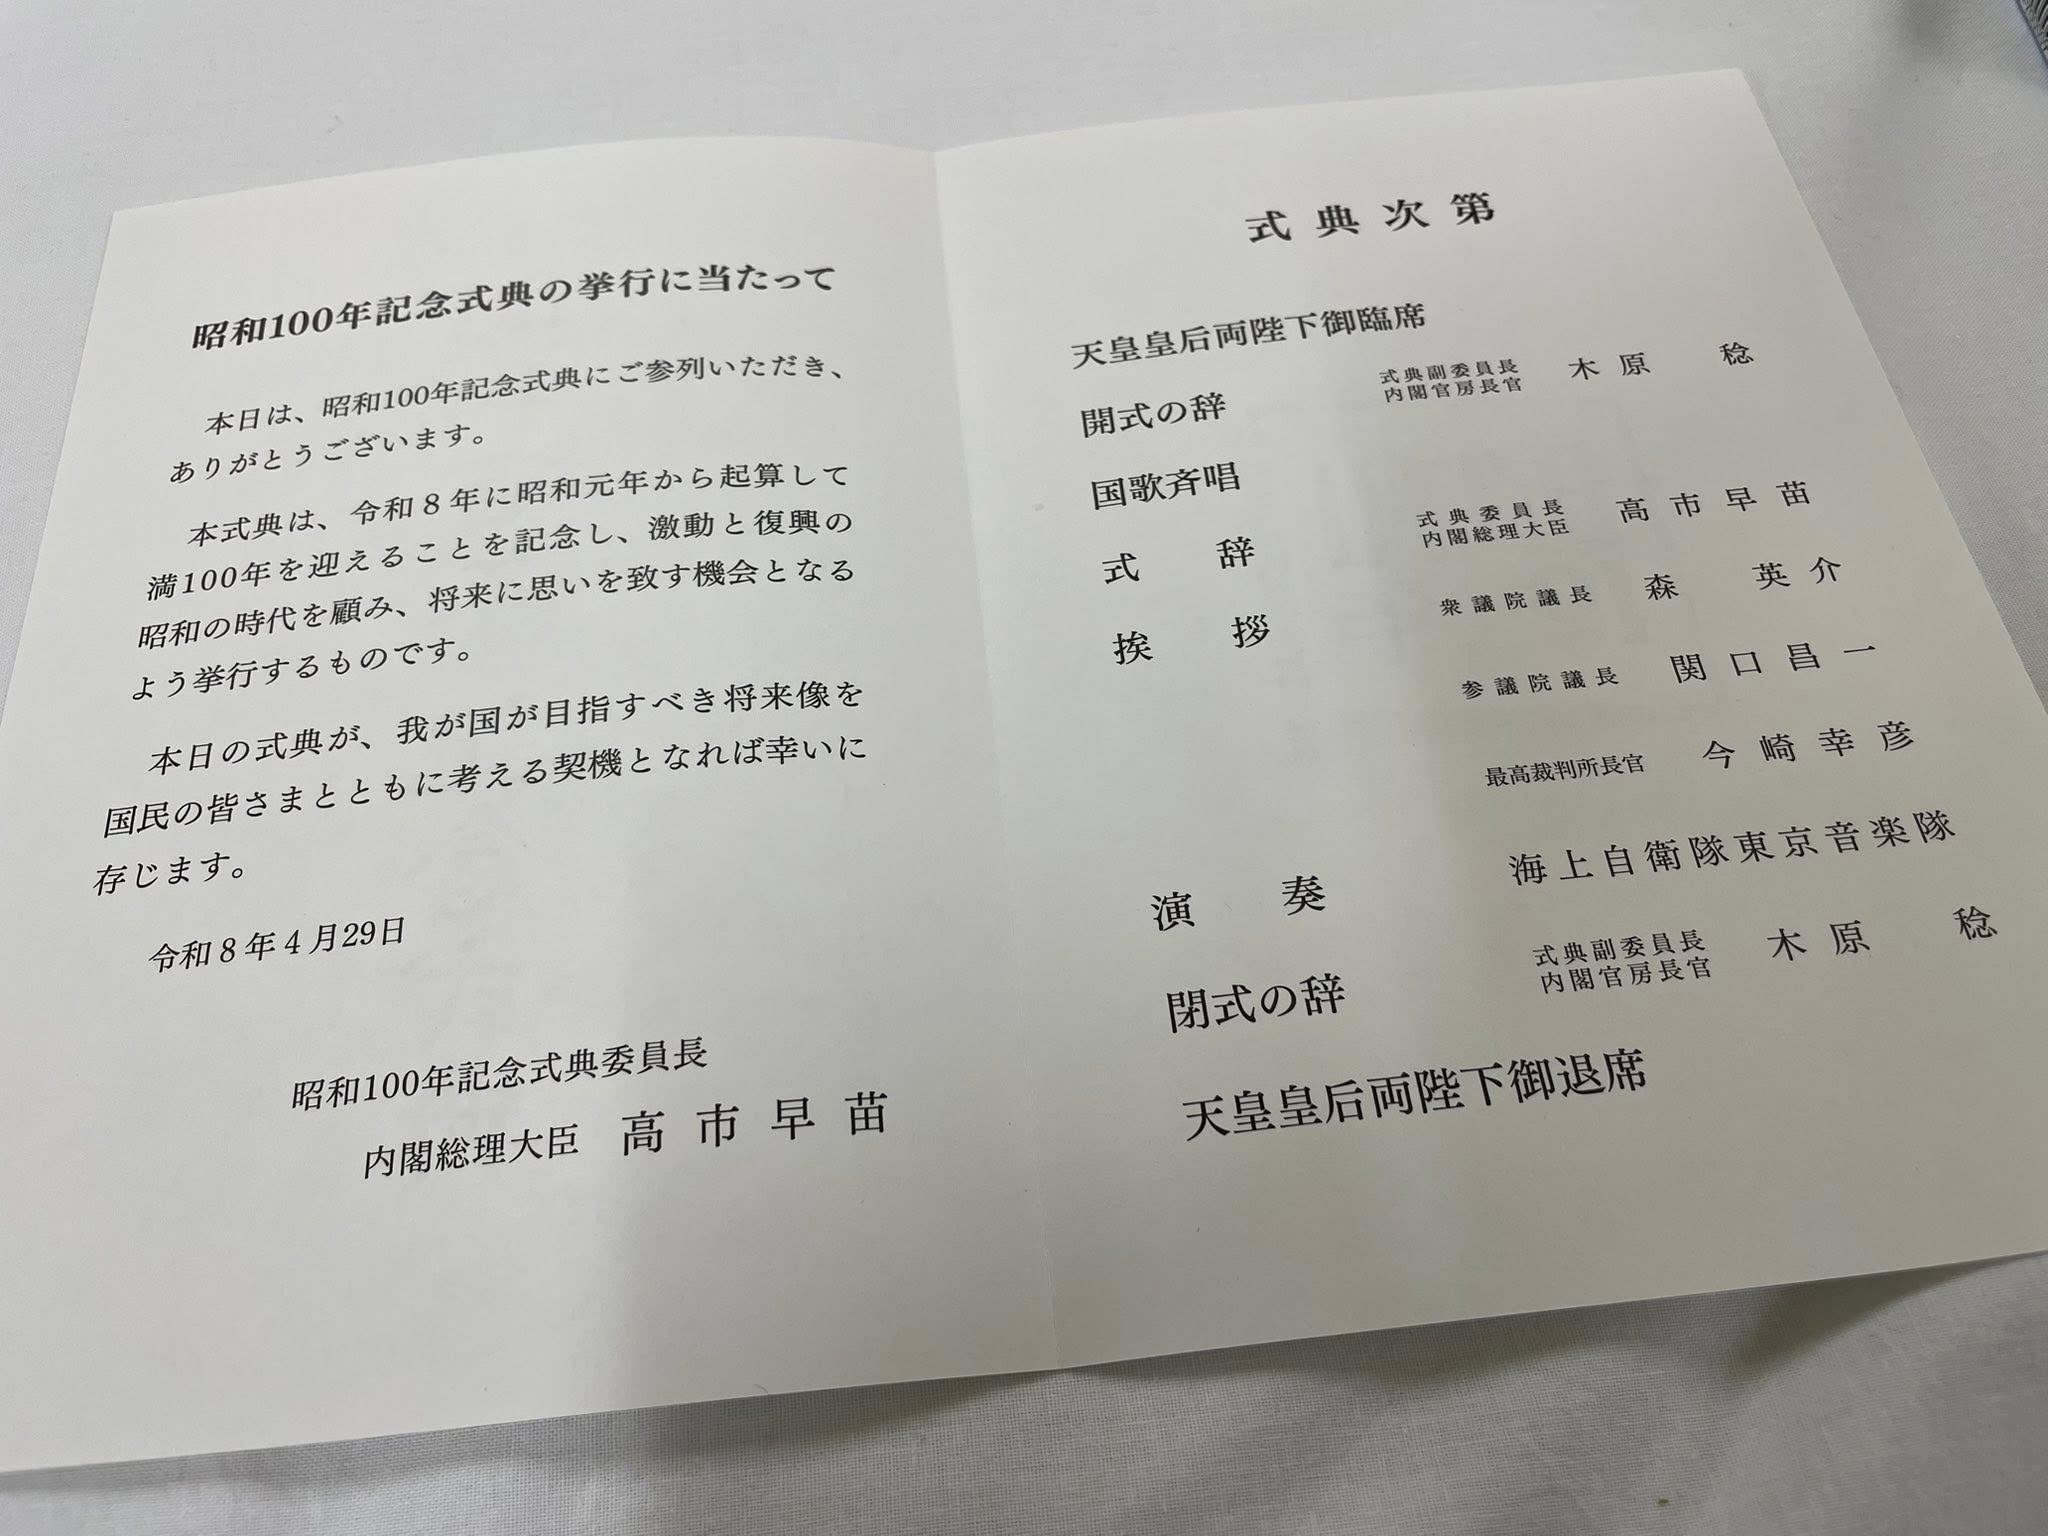 昭和100年記念式典の挙行に当たって
本日は、昭和100年記念式典にご参列いただき、
ありがとうございます。
本式典は、令和８年に昭和元年から起算して
満100年を迎えることを記念し、激動と復興の
昭和の時代を顧み、将来に思いを致す機会となる
よう挙行するものです。
本日の式典が、我が国が目指すべき将来像を
国民の皆さまとともに考える契機となれば幸いに
存じます。
令和８年４月29日
昭和100年記念式典委員長
内閣総理大臣 高市早苗
式典次第
天皇皇后両陛下御臨席
開式の辞 式典副委員長 内閣官房長官 木原 稔
国歌斉唱
式辞 式典委員長 内閣総理大臣 高市早苗
挨拶 衆議院議長 森 英介
参議院議長 関口昌一
最高裁判所長官 今崎幸彦
演奏 海上自衛隊東京音楽隊
閉式の辞 式典副委員長 内閣官房長官 木原 稔
天皇皇后両陛下御退席